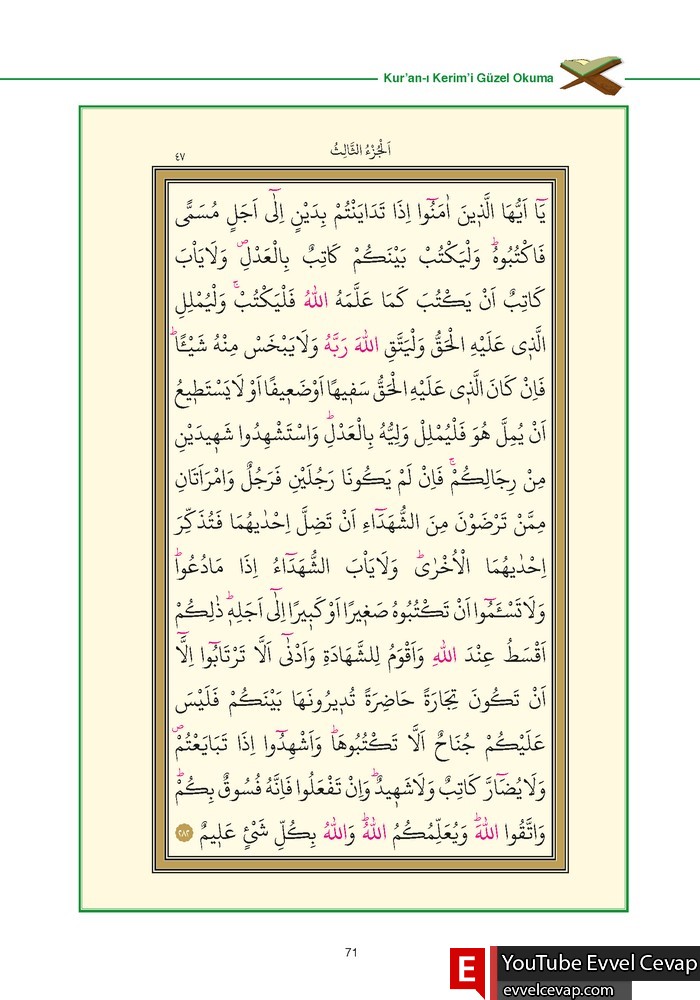 Kur’an-ı Kerim’i Güzel Okuma
اَلْجُزْءُ الثَّالِثُ
٤٧
يَٓا اَيُّهَا الَّذ۪ينَ اٰمَنُٓوا اِذَا تَدَايَنْتُمْ بِدَيْنٍ اِلٰٓى اَجَلٍ مُسَمًّى
فَاكْتُبُوهُۜ وَلْيَكْتُبْ بَيْنَكُمْ كَاتِبٌ بِالْعَدْلِۖ وَلَا يَاْبَ
كَاتِبٌ اَنْ يَكْتُبَ كَمَا عَلَّمَهُ اللّٰهُ فَلْيَكْتُبْۚ وَلْيُمْلِلِ
الَّذ۪ي عَلَيْهِ الْحَقُّ وَلْيَتَّقِ اللّٰهَ رَبَّهُ وَلَا يَبْخَسْ مِنْهُ شَيْـًٔاۜ
فَاِنْ كَانَ الَّذ۪ي عَلَيْهِ الْحَقُّ سَف۪يهًا اَوْ ضَع۪يفًا اَوْ لَا يَسْتَط۪يعُ
اَنْ يُمِلَّ هُوَ فَلْيُمْلِلْ وَلِيُّهُ بِالْعَدْلِۜ وَاسْتَشْهِدُوا شَه۪يدَيْنِ
مِنْ رِجَالِكُمْۚ فَاِنْ لَمْ يَكُونَا رَجُلَيْنِ فَرَجُلٌ وَامْرَاَتَانِ
مِمَّنْ تَرْضَوْنَ مِنَ الشُّهَدَٓاءِ اَنْ تَضِلَّ اِحْدٰيهُمَا فَتُذَكِّرَ
اِحْدٰيهُمَا الْاُخْرٰىۜ وَلَا يَاْبَ الشُّهَدَٓاءُ اِذَا مَا دُعُواۜ
وَلَا تَسْـَٔمُٓوا اَنْ تَكْتُبُوهُ صَغ۪يرًا اَوْ كَب۪يرًا اِلٰٓى اَجَلِه۪ۜ ذٰلِكُمْ
اَقْسَطُ عِنْدَ اللّٰهِ وَاَقْوَمُ لِلشَّهَادَةِ وَاَدْنٰٓى اَلَّا تَرْتَابُٓوا اِلَّٓا
اَنْ تَكُونَ تِجَارَةً حَاضِرَةً تُد۪يرُونَهَا بَيْنَكُمْ فَلَيْسَ
عَلَيْكُمْ جُنَاحٌ اَلَّا تَكْتُبُوهَاۜ وَاَشْهِدُٓوا اِذَا تَبَايَعْتُمْۖ
وَلَا يُضَٓارَّ كَاتِبٌ وَلَا شَه۪يدٌۜ وَاِنْ تَفْعَلُوا فَاِنَّهُ فُسُوقٌ بِكُمْۜ
وَاتَّقُوا اللّٰهَۜ وَيُعَلِّمُكُمُ اللّٰهُۜ وَاللّٰهُ بِكُلِّ شَيْءٍ عَل۪يمٌ ﴿٢٨٢﴾
71
E YouTube Evvel Cevap
evvelcevap.com